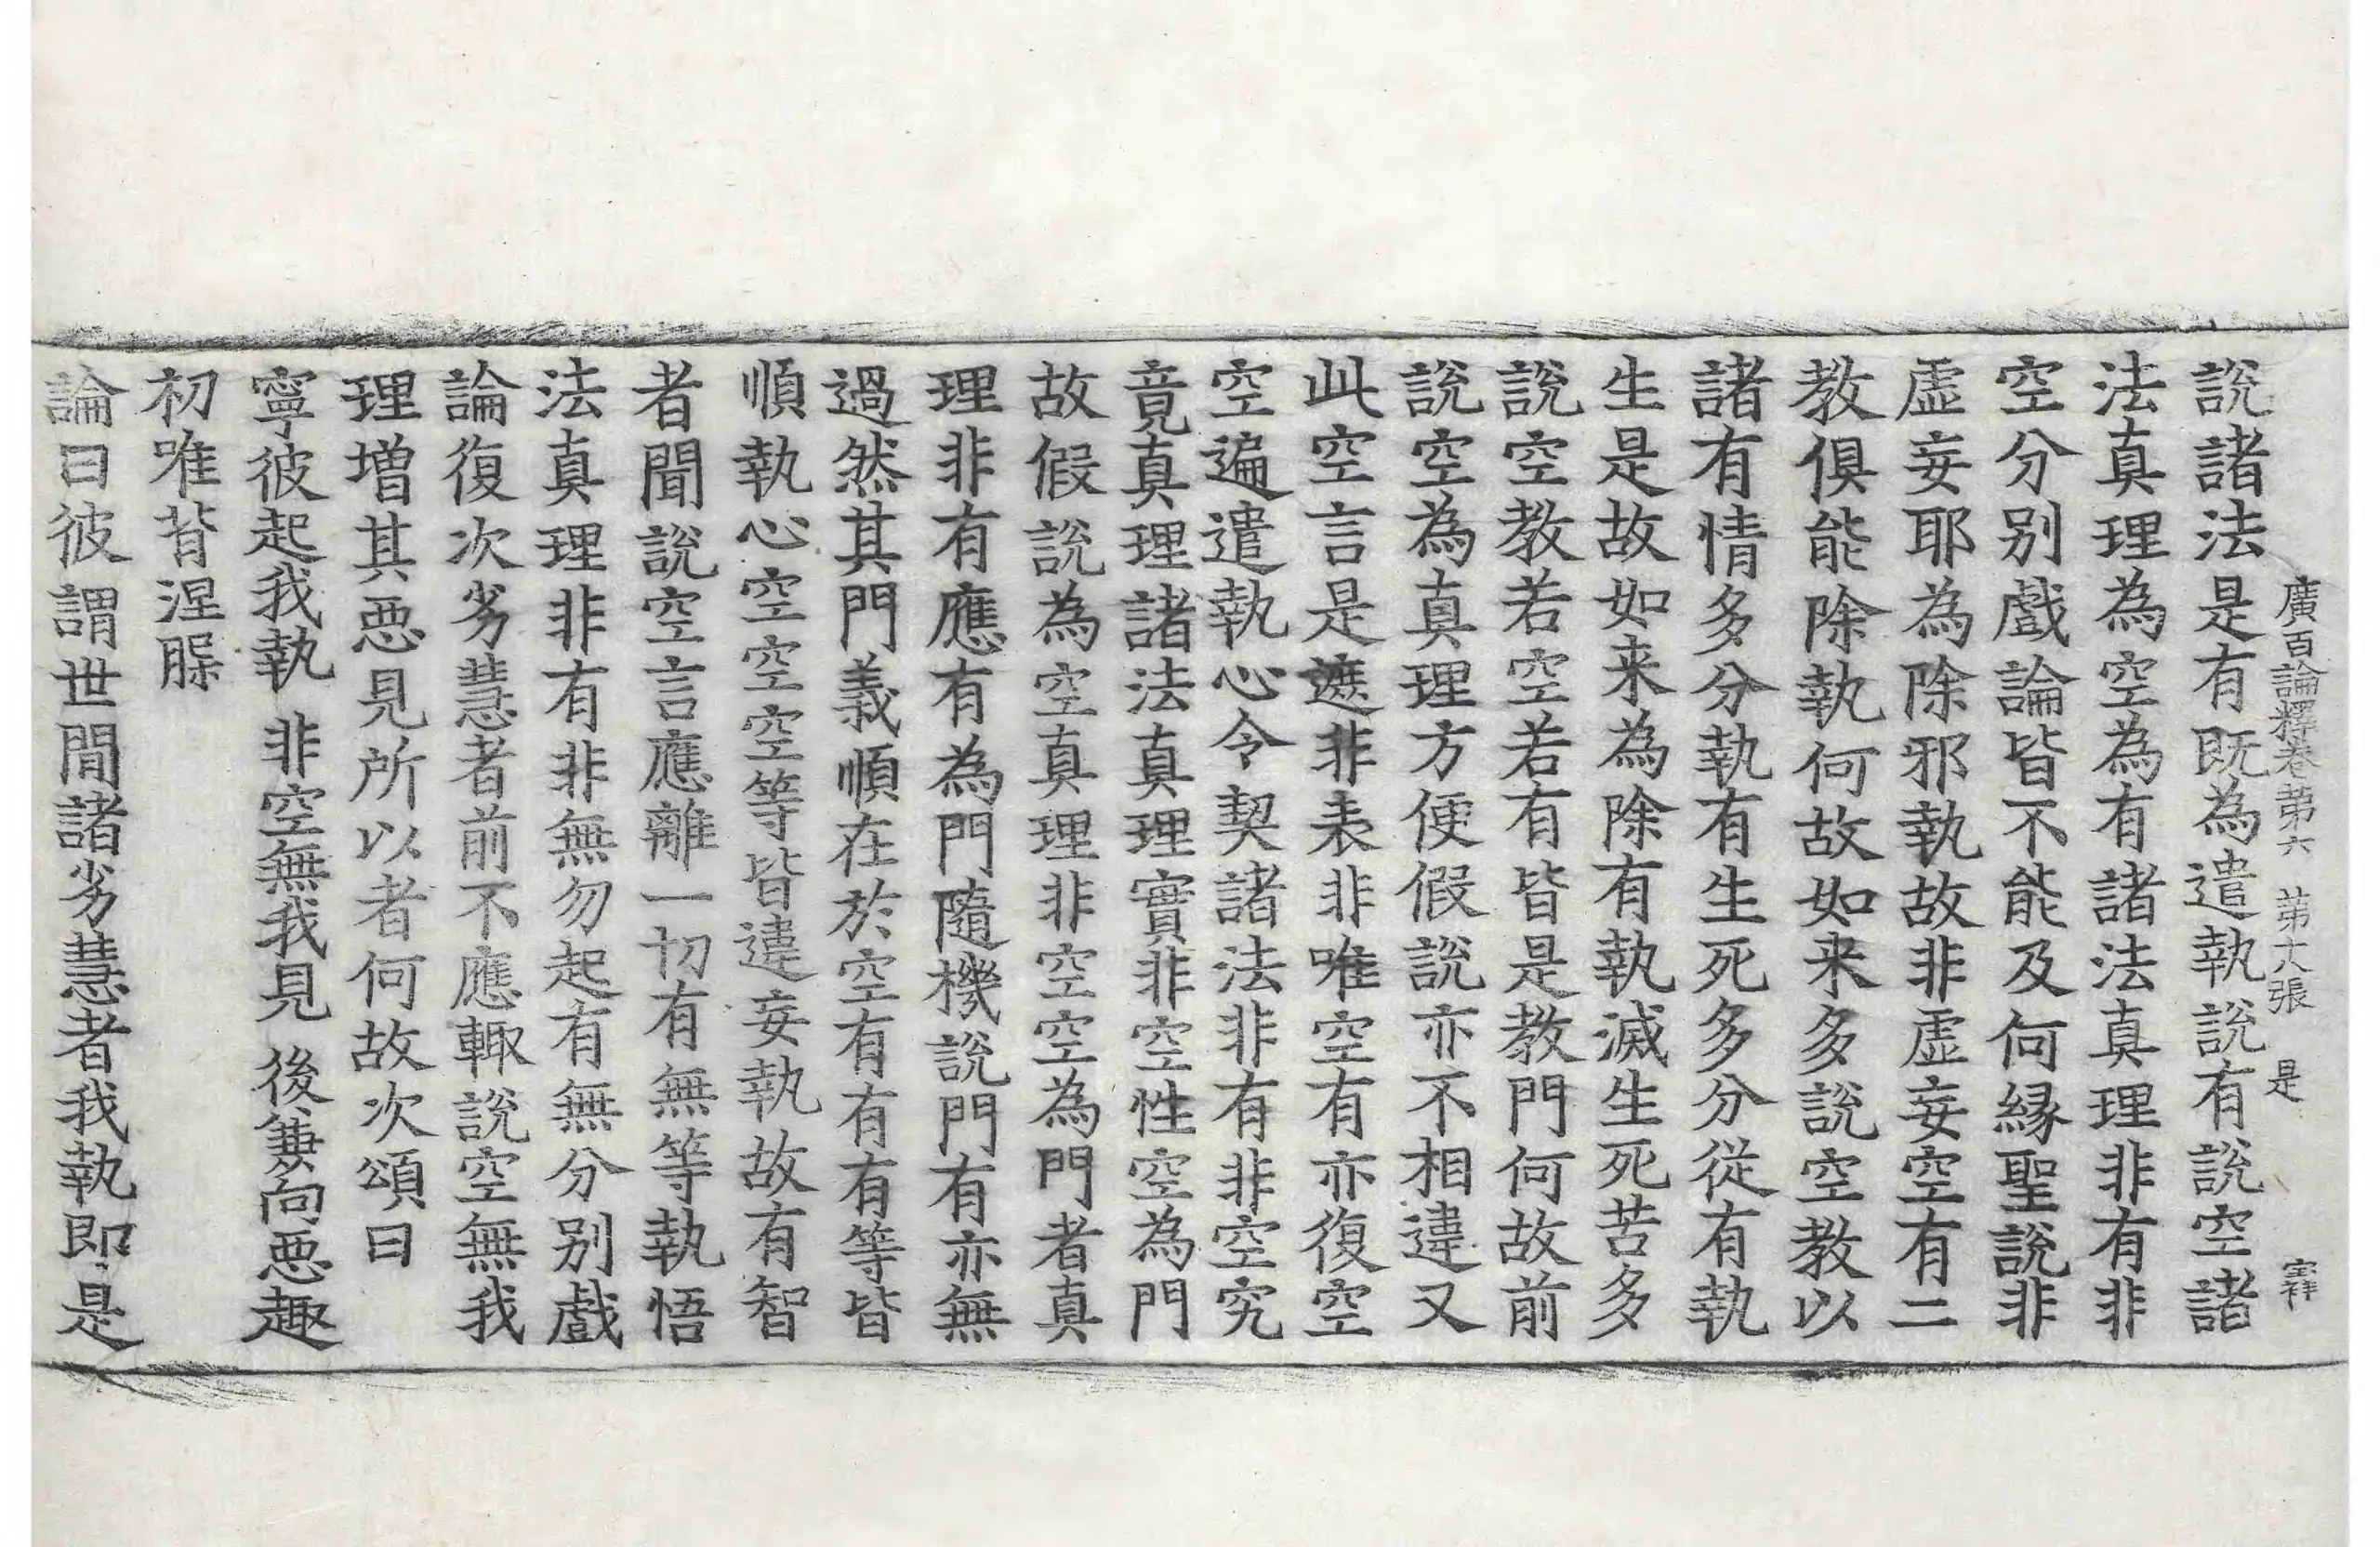 廣百論釋卷第六　第六張　是　宰祥
說諸法是有既為遣執說有說空諸
法真理為空為有諸法真理非有非
空分别戲論皆不能及何緣聖說非
虛妄耶為除邪執故非虛妄空有二
教俱能除執何故如来多說空教以
諸有情多分執有生死多分從有執
生是故如来為除有執滅生死苦多
說空教若空若有皆是教門何故前
說空為真理方便假說亦不相違又
此空言是遮非表非唯空有亦復空
空遍遣執心令契諸法非有非空究
竟真理諸法真理實非空性空為門
故假說為空真理非空空為門者真
理非有應有為門隨機說門有亦無
過然其門義順在於空有有有等皆
順執心空空空等皆違妄執故有智
者聞說空言應離一切有無等執悟
法真理非有非無勿起有無分别戲
論復次劣慧者前不應輙說空無我
理增其惡見所以者何故次頌曰
寧彼起我執　非空無我見　後兼向惡趣
初唯背涅槃
論曰彼謂世間諸劣慧者我執即是